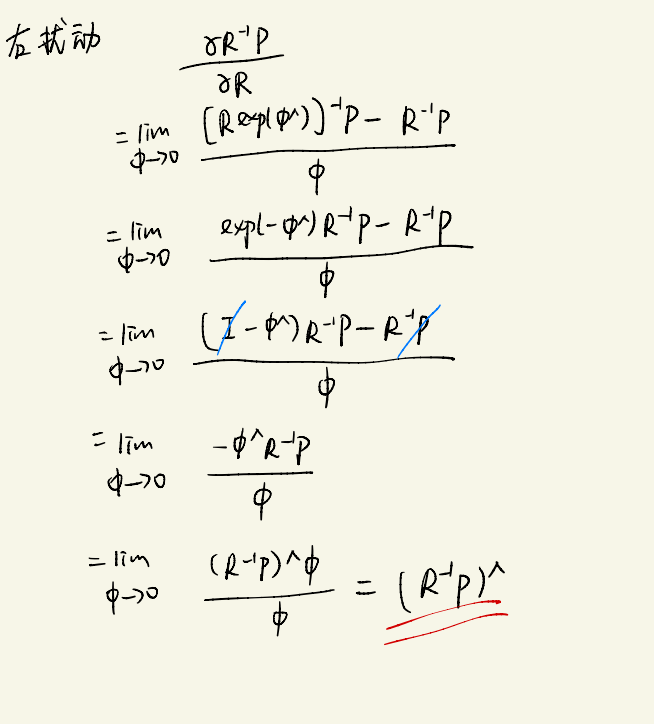 右扰动 ∂R⁻¹P / ∂R
= lim ϕ→0 ([R exp(ϕ^)]⁻¹P - R⁻¹P) / ϕ
= lim ϕ→0 (exp(-ϕ^)R⁻¹P - R⁻¹P) / ϕ
= lim ϕ→0 ((I - ϕ^)R⁻¹P - R⁻¹P) / ϕ
= lim ϕ→0 (-ϕ^R⁻¹P) / ϕ
= lim ϕ→0 ((R⁻¹P)^ϕ) / ϕ = (R⁻¹P)^